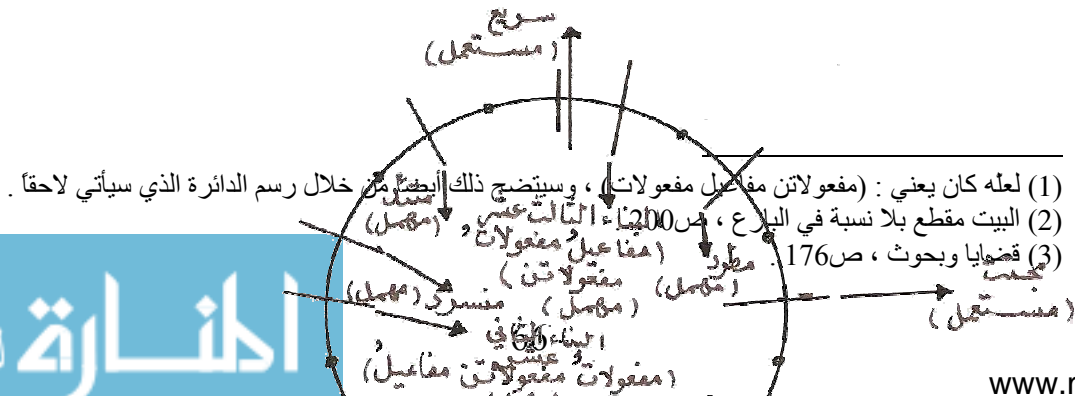 سريع
(مستعمل)
(1) لعله كان يعني : (مفعولاتن مفاعيل مفعولات) ، وسيتضح ذلك أيضاً من خلال رسم الدائرة الذي سيأتي لاحقاً .
(2) البيت مقطع بلا نسبة في البارع ، ص200 .
(3) قضايا وبحوث ، ص176 .
(مهمل)
البناء الثالث عشر
(مفاعيلُ مفعولاتُ
مفعولاتن)
(مهمل)
مطرد
(مهمل)
منسرد (مهمل)
(مستعمل)
البناء الثاني
عشر
(مفعولاتُ مفعولاتن مفاعيلُ)
المنارة